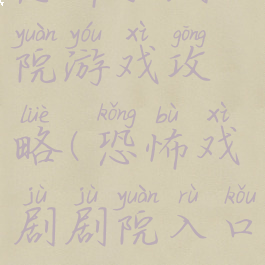 yuàn yóu xì gōng
院游戏攻
lüè kǒng bù xì
略(恐怖戏
jù jù yuàn rù kǒu
剧剧院入口